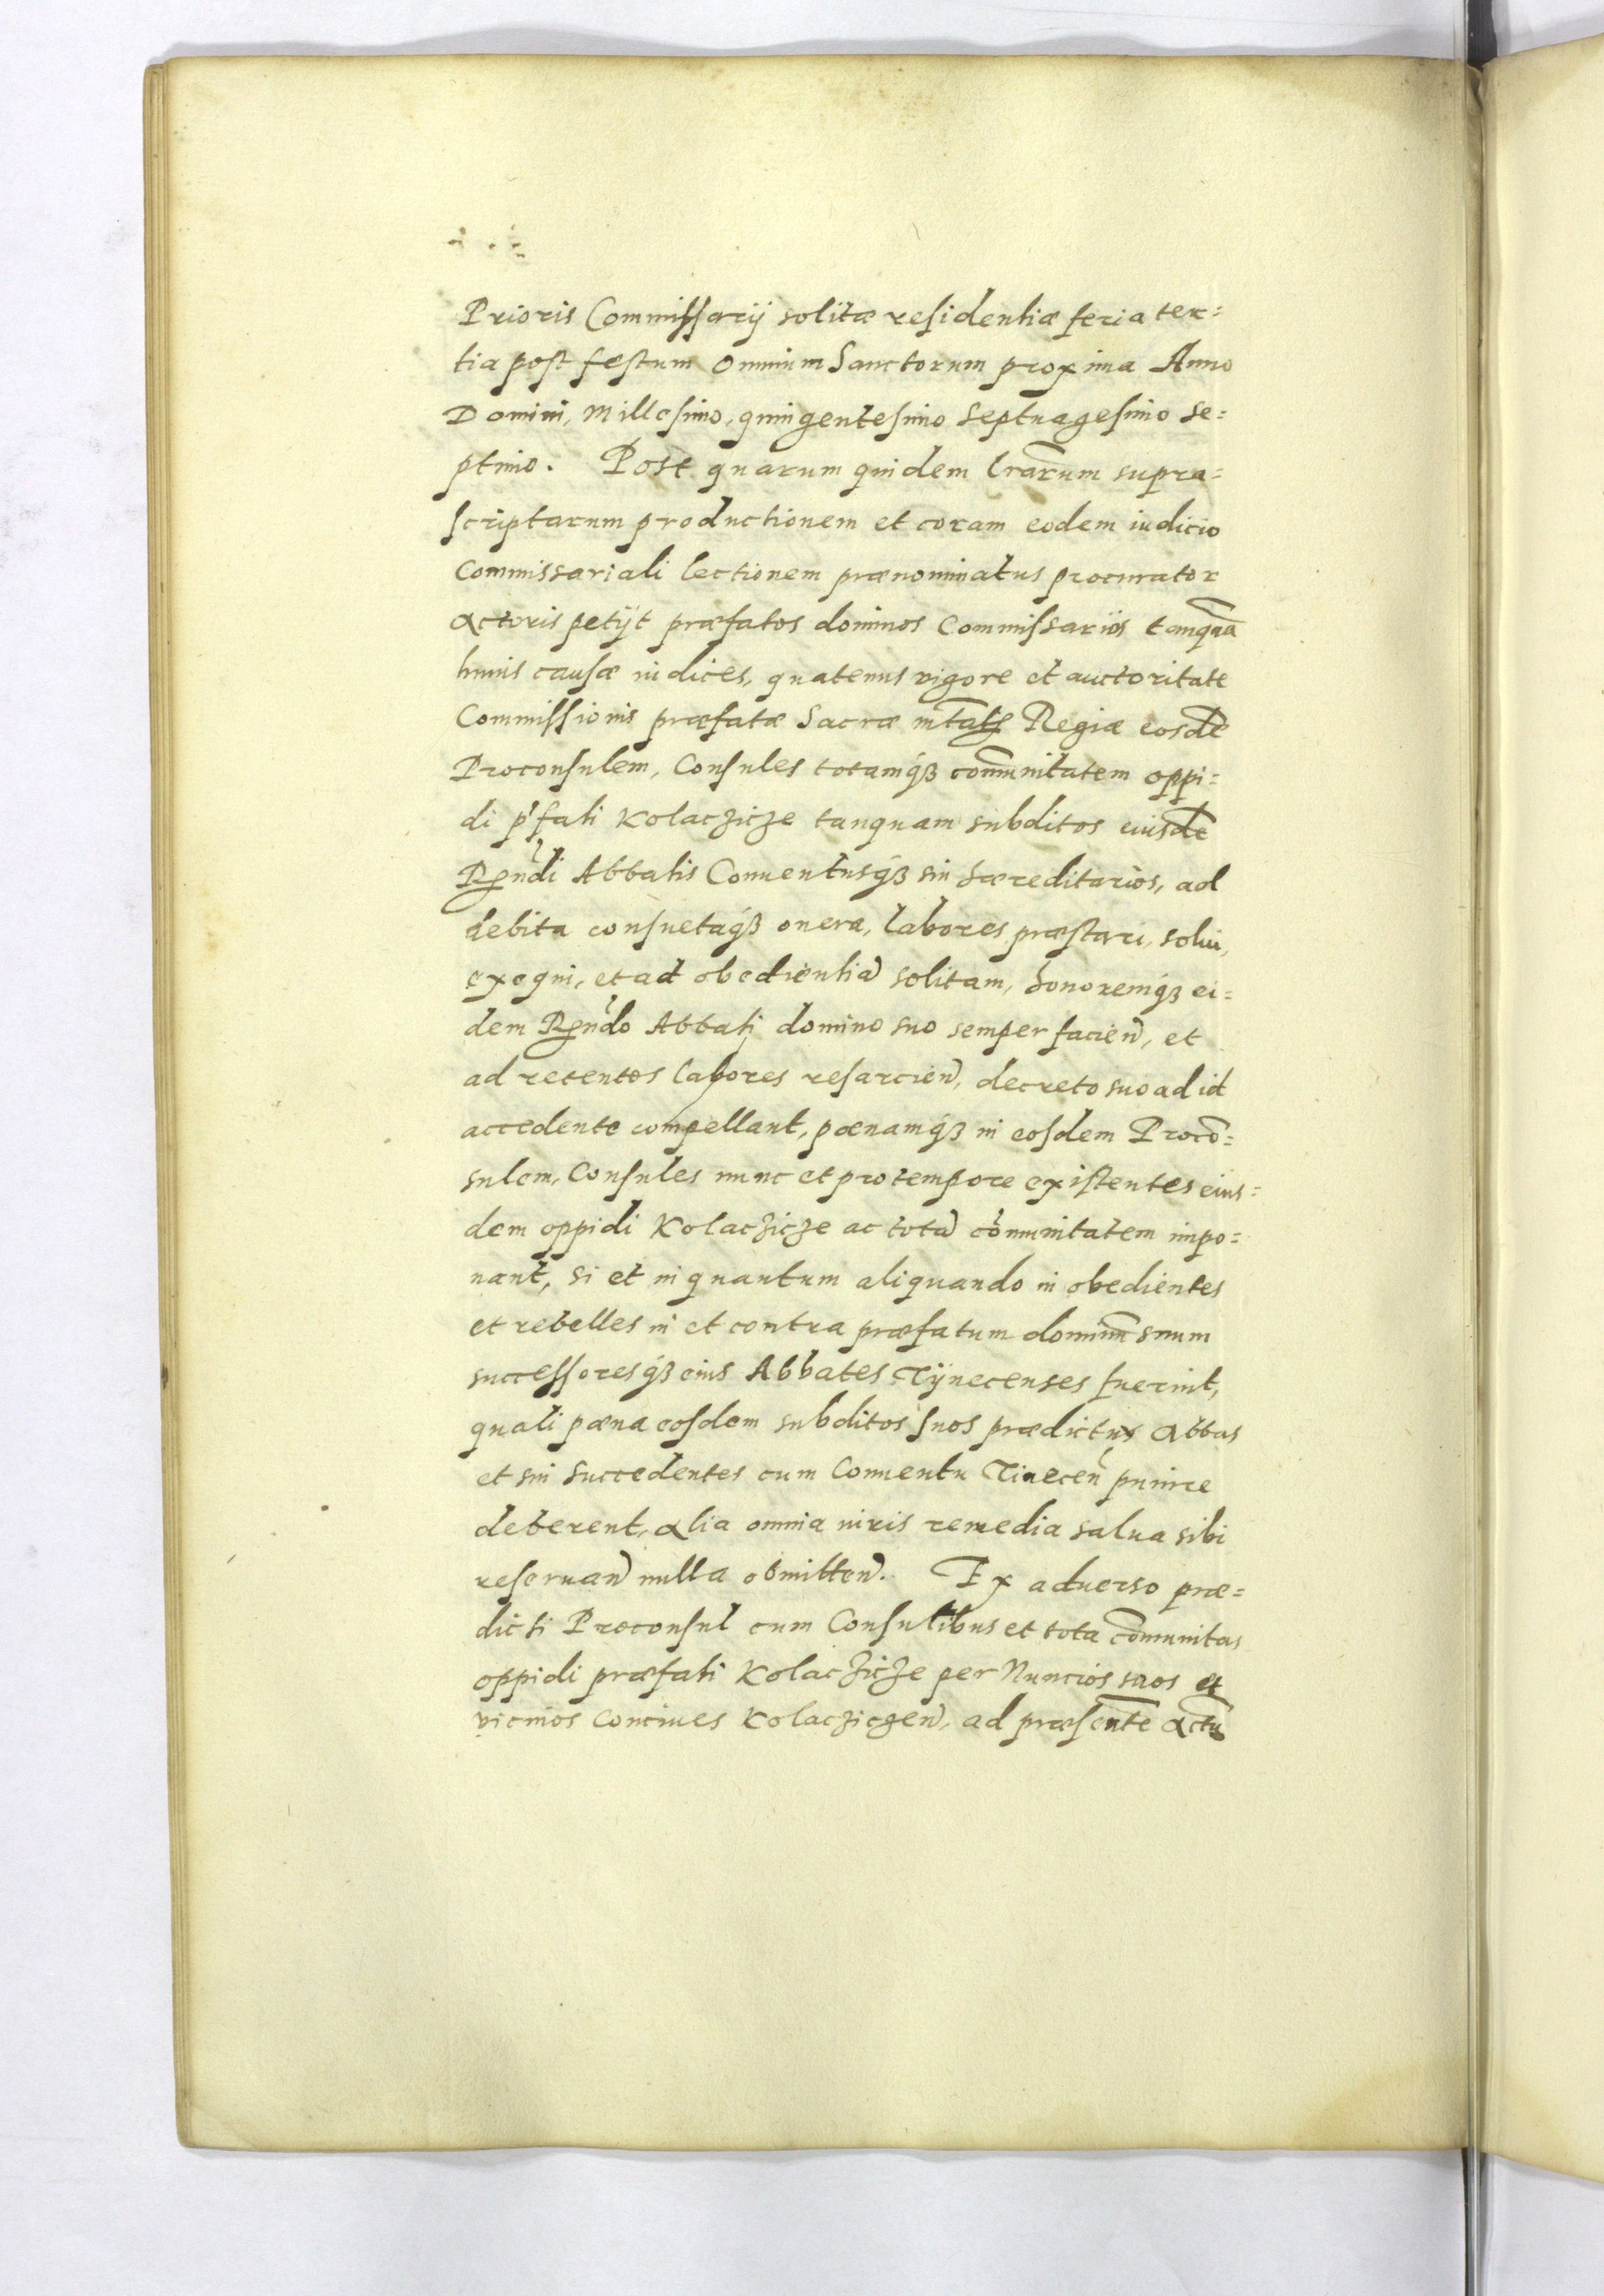 Prioris Commissarij solitæ residentiæ feria ter=
tia post festum Omnium Sanctorum proxima Anno
Domini, Millesimo, quingentesimo Septuagesimo se=
ptimo. Post quarum quidem lrarum supra=
scriptarum productionem et coram eodem iudicio
Commissariali lectionem prænominatus procurator
actoris petijt præfatos dominos Commissarios tanquā
huius causæ iudices, quatenus vigore et auctoritate
Commissionis præfatæ Sacræ mtatis Regiæ eosdē
Proconsulem, Consules totamq́ꝫ com̄unitatem oppi=
di p'fati Kolaczicze tanquam subditos eiusdē
Rndi Abbatis Conuentusq́ꝫ sui hæreditarios, ad
debita consuetaq́ꝫ onera, labores præstari, solui,
exequi, et ad obedientiā solitam, honoremq́ꝫ ei=
dem Rndo Abbati domino suo semper facien̄, et
ad retentos labores resarcien̄, decreto suo ad id
accedente compellant, pœnamq́ꝫ in eosdem Procō=
sulem, Consules nunc et pro tempore existentes eius=
dem oppidi Kolaczicze ac totā cōmunitatem impo=
nant, si et in quantum aliquando in obedientes
et rebelles in et contra præfatum dominū suum
successoresq́ꝫ eius Abbates Tÿnecenses fuerint,
quali pœna eosdem subditos suos prædictus Abbas
et sui succedentes cum Conuentu Tinecen̄ punire
deberent, alia omnia iuris remedia salua sibi
reseruan̄ nulla obmitten̄. Ex aduerso præ=
dicti Proconsul cum Consulibus et tota cōmunitas
oppidi præfati Kolaczicze per Nuncios suos et
vicinos Conciues Kolacziczen̄, ad præsentē actū